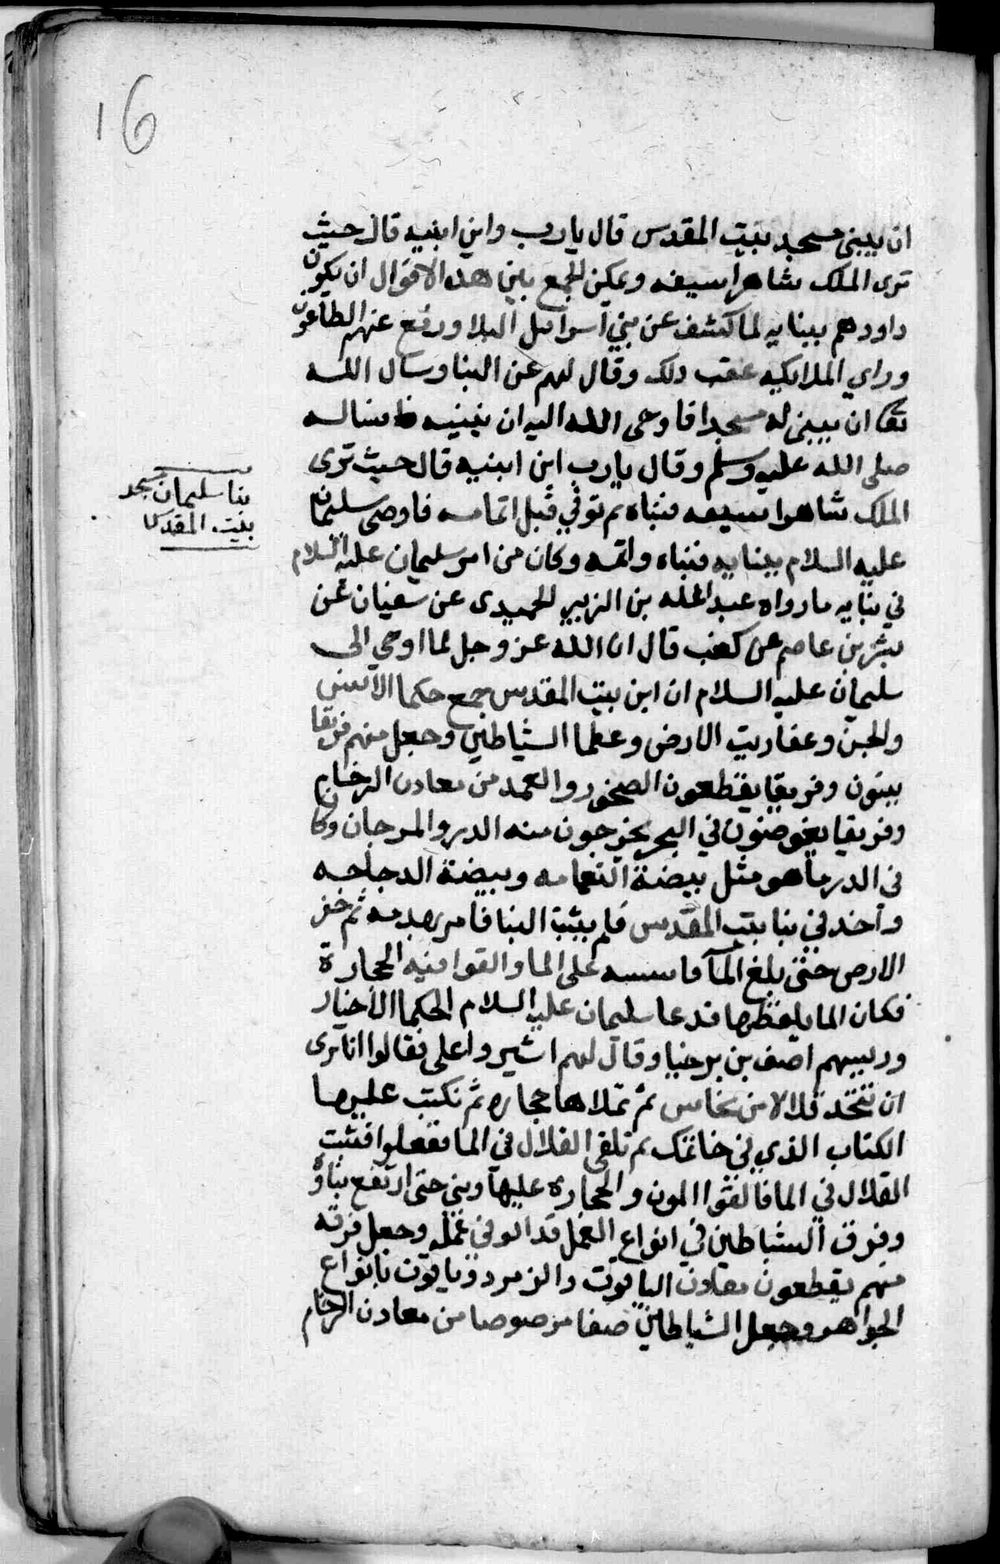 16
ان يبني مسجد بيت المقدس قال يا رب واين ابنيه قال حيث
ترى الملك شاهرا سيفه ويمكن الجمع بين هده الاقوال ان يكون
داود هم ببنايه لما كشف عن بني اسرايل البلا ورفع عنهم الطاعون
وراي الملايكه عقب دلك وقال لهم عن البنا وسال الله
تعا ان يبنى له مسجدا فاوحى الله اليه ان يبنيه فساله
صلى الله عليه وسلم وقال يا رب اين ابنيه قال حيث ترى
الملك شاهرا سيفه فبناه ثم توفي قبل اتمامه فاوصى سليمان
عليه السلام ببنايه فبناه واتمه وكان من امر سليمان عليه السلام
في بنايه ما رواه عبد الله بن الزبير الحميدى عن سفيان عن
بشر بن عاصم عن كعب قال ان الله عز وجل لما اوحى الى
سليمان عليه السلام ان ابن بيت المقدس جمع حكما الانس
والجن وعفاريت الارض وعظما الشياطين وجعل منهم فريقا
يبنون وفريقا يقطعون الصخور والعمد من معادن الرخام
وفريقا يغوصون في البحر يخرجون منه الدر والمرجان وكان
في الدر ما هو مثل بيضة النعامه وبيضة الدجاجه
واخد في بنا بيت المقدس فلم يثبت البنا فامر بهدمه ثم حفر
الارض حتى بلغ الما فاسسه على الما والقوا فيه الحجارة
فكان الما يلفظها فدعا سليمان عليه السلام الحكما الاخيار
ورييسهم اصف بن برخيا وقال لهم اشيروا علي فقالوا انا نرى
ان تتخد قلالا من نحاس ثم تملاها حجاره ثم نكتب عليها
الكتاب الذي في خاتمك ثم تلقى القلال في الما ففعلوا فثبتت
القلال في الما فالقوا المون والحجاره عليها وبنى حتى ارتفع بناؤه
وفرق الشياطين في انواع العمل فدابوا في عمله وجعل فرقه
منهم يقطعون معادن الياقوت والزمرد وياتون بانواع
الجواهر وجعل الشياطين صفا مرصوصا من معادن الرخام
بنا سليمان مسجد
بيت المقدس